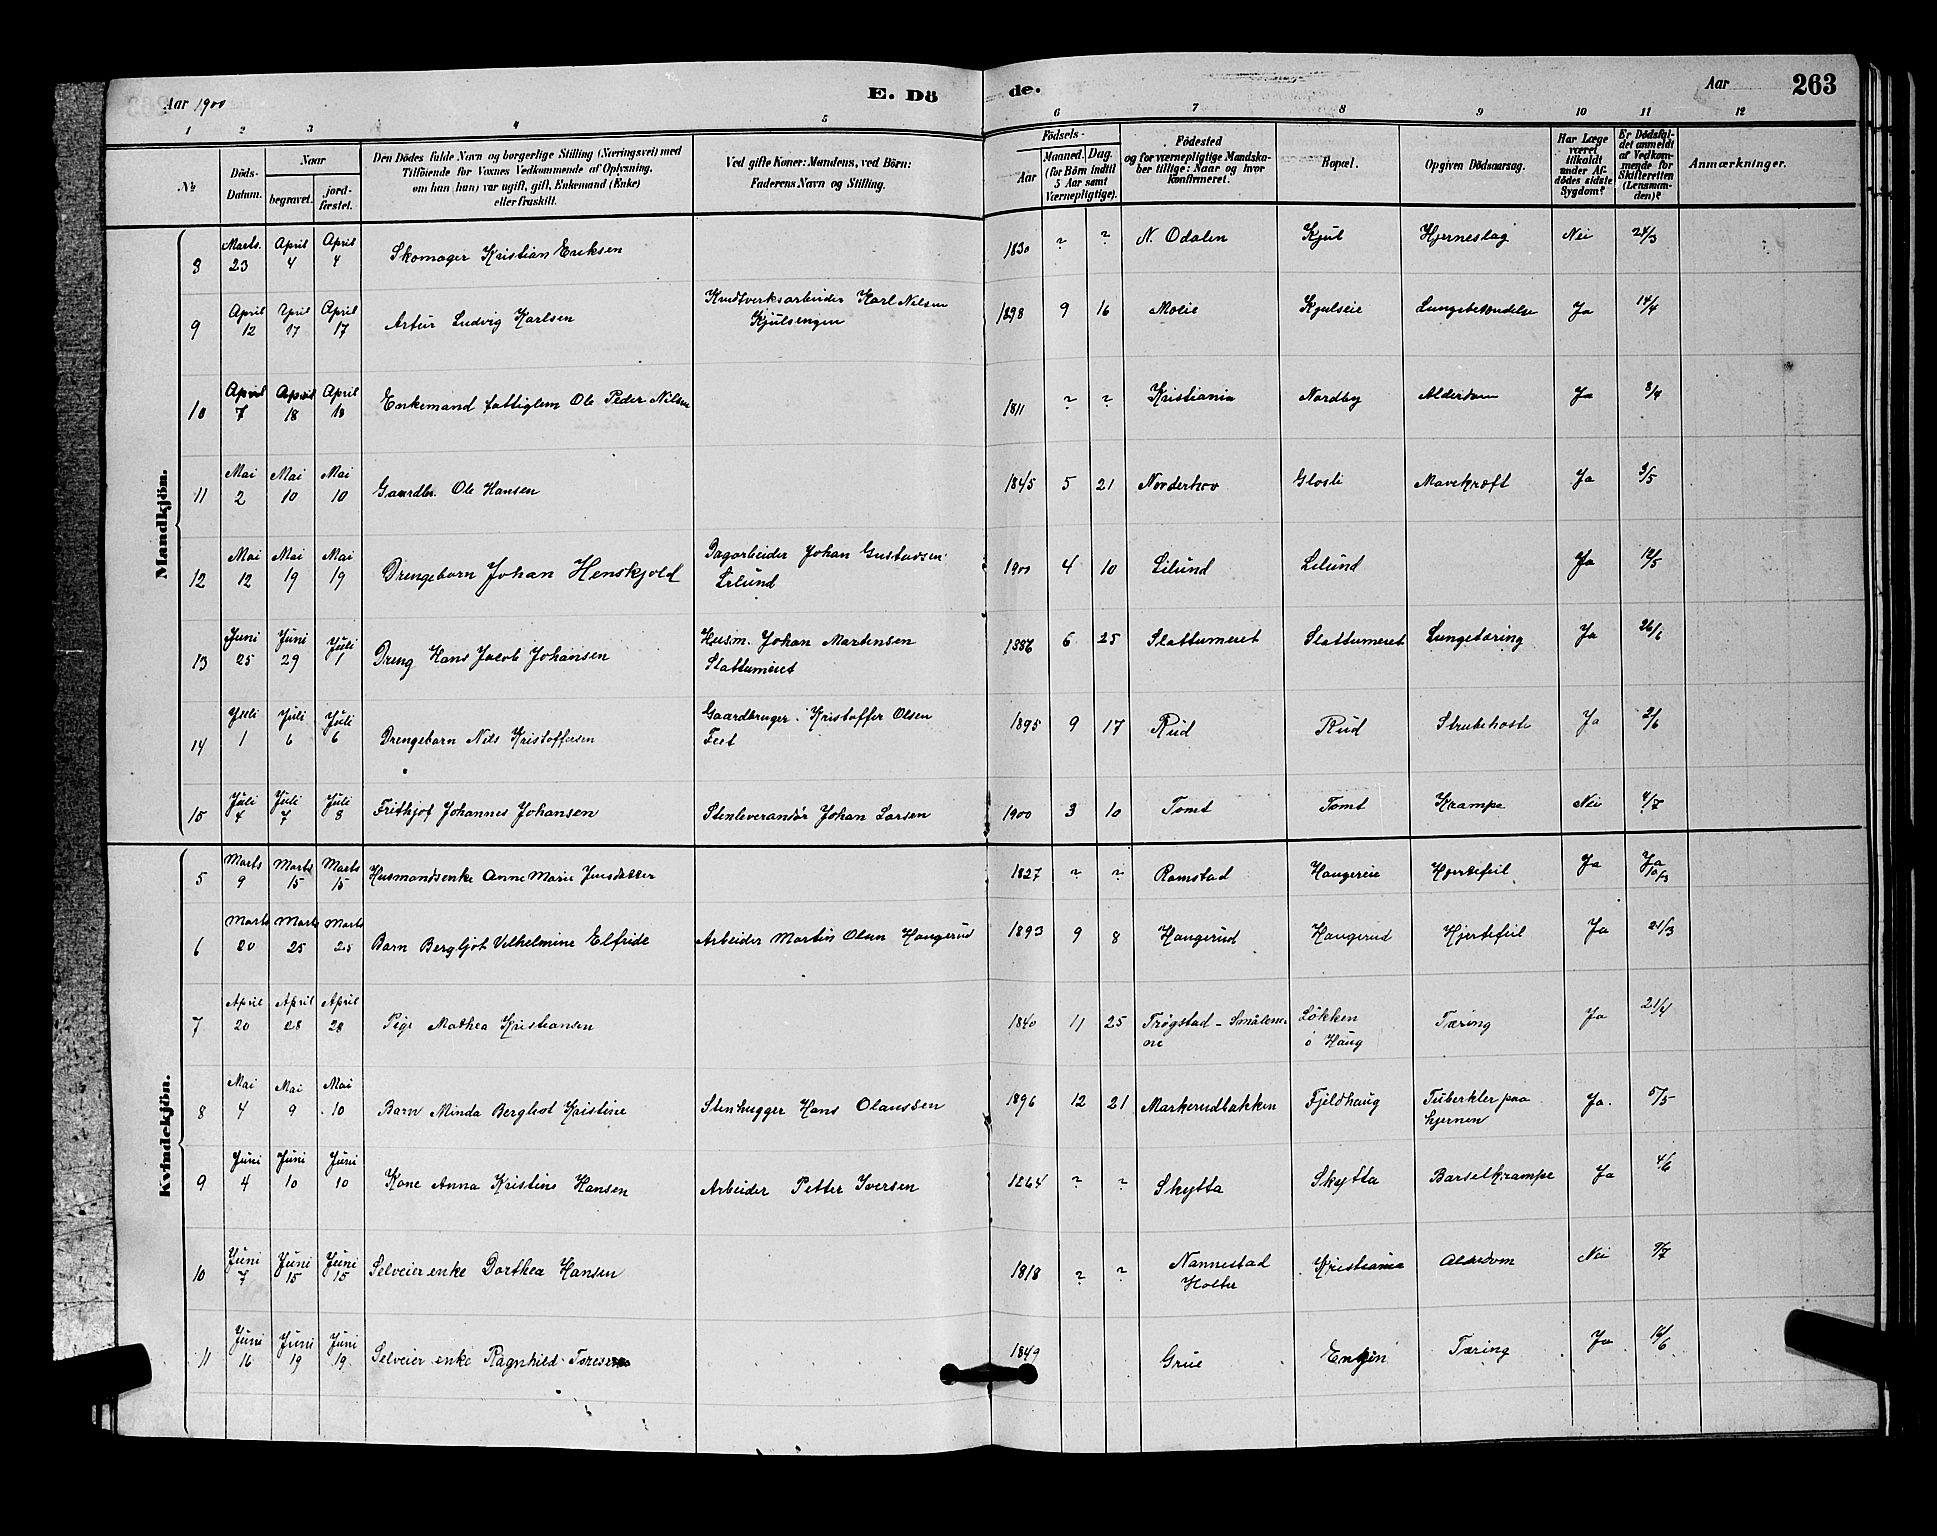 Aar 1900
E. Dö
de.
Aar
263
1 2 3 4 5 6 7 8 9 10 11 12
№
Döds-Datum.
Naar
begravet.
jord-fæstet.
Den Dödes fulde Navn og borgerlige Stilling (Næringsvei) med
Tilföiende for Voxnes Vedkommende af Oplysning,
om han (hun) var ugift, gift, Enkemand (Enke)
eller fraskilt.
Ved gifte Koner: Mandens, ved Börn:
Faderens Navn og Stilling.
Födsels-
Aar
Maaned. Dag.
(for Börn indtil
5 Aar samt
Værnepligtige).
Födested
og for værnepligtige Mandska-
ber tillige: Naar og hvor
konfirmeret.
Bopæl.
Opgiven Dödsaarsag.
Har Læge
været
tilkaldt
under Af-
dödes sidste
Sygdom?
Er Dödsfal-
det anmeldt
af Vedkom-
mende for
Skifteretten
(Lensman-
den)?
Anmærkninger.
Mandkjön.
8 Marts 23 April 4 April 4 Skomager Kristian Eriksen 1830 ? ? N. Odalen Kjul Hjerneslag Nei 24/3
9 April 12 April 17 April 17 Artur Ludvig Karlsen Krudtverksarbeider Karl Nilsen
Kjulsengen 1898 9 16 Moeie Kjulseie Lungebetændelse Ja 14/4
10 April 7 April 18 April 18 Enkemand fattiglem Ole Peder Nilsen 1811 ? ? Kristiania Nordby Alderdom Ja 8/4
11 Mai 2 Mai 10 Mai 10 Gaardbr. Ole Hansen 1845 5 21 Norderhov Glosli Mavekræft Ja 3/5
12 Mai 12 Mai 19 Mai 19 Drengebarn Johan Henskjold Dagarbeider Johan Gustavsen
Lilund 1900 4 10 Lilund Lilund Ja 12/5
13 Juni 25 Juni 29 Juli 1 Dreng Hans Jacob Johansen Husm. Johan Martensen
Slattumeiet 1886 6 25 Slattumeiet Slattumeiet Lungetæring Ja 26/6
14 Juli 1 Juli 6 Juli 6 Drengebarn Nils Kristoffersen Gaardbruger Kristoffer Olsen
1895 9 17 Rud Rud Strubehoste Ja 2/6
15 Juli 4 Juli 7 Juli 8 Frithjof Johannes Johansen Stenleverandør Johan Larsen 1900 3 10 Tomt Tomt Krampe Nei 4/7
Kvindekjön.
5 Marts 9 Marts 15 Marts 15 Husmandsenke Anne Marie Jensdatter 1827 ? ? Ramstad Haugereie Hjertefeil Ja Ja 10/3
6 Marts 20 Marts 25 Marts 25 Barn Bergljot Vilhelmine Elfride Arbeider Martin Olsen Haugerud 1893 9 8 Haugerud Haugerud Hjertefeil Ja 21/3
7 April 20 April 28 April 28 Pige Mathea Kristiansen 1840 11 25 Trøgstad - Smålene-
ne Løkken
o Haug Tæring Ja 21/4
8 Mai 4 Mai 9 Mai 10 Barn Minda Bergliot Kristine Stenhugger Hans Olaussen 1896 12 21 Markerudbakken Fjeldhaug Tuberkler paa
hjernen Ja. 5/5
9 Juni 4 Juni 10 Juni 10 Kone Anna Kristine Hansen Arbeider Petter Iversen 1864 ? ? Skytta Skytta Barselkrampe Ja 4/6
10 Juni 7 Juni 15 Juni 15 Selveier enke Dorthea Hansen 1818 ? ? Nannestad
Holter Kristiania Alderdom Nei 9/7
11 Juni 16 Juni 19 Juni 19 Selveier enke Ragnhild Toresen 1849 Grue Engen Tæring Ja 16/6